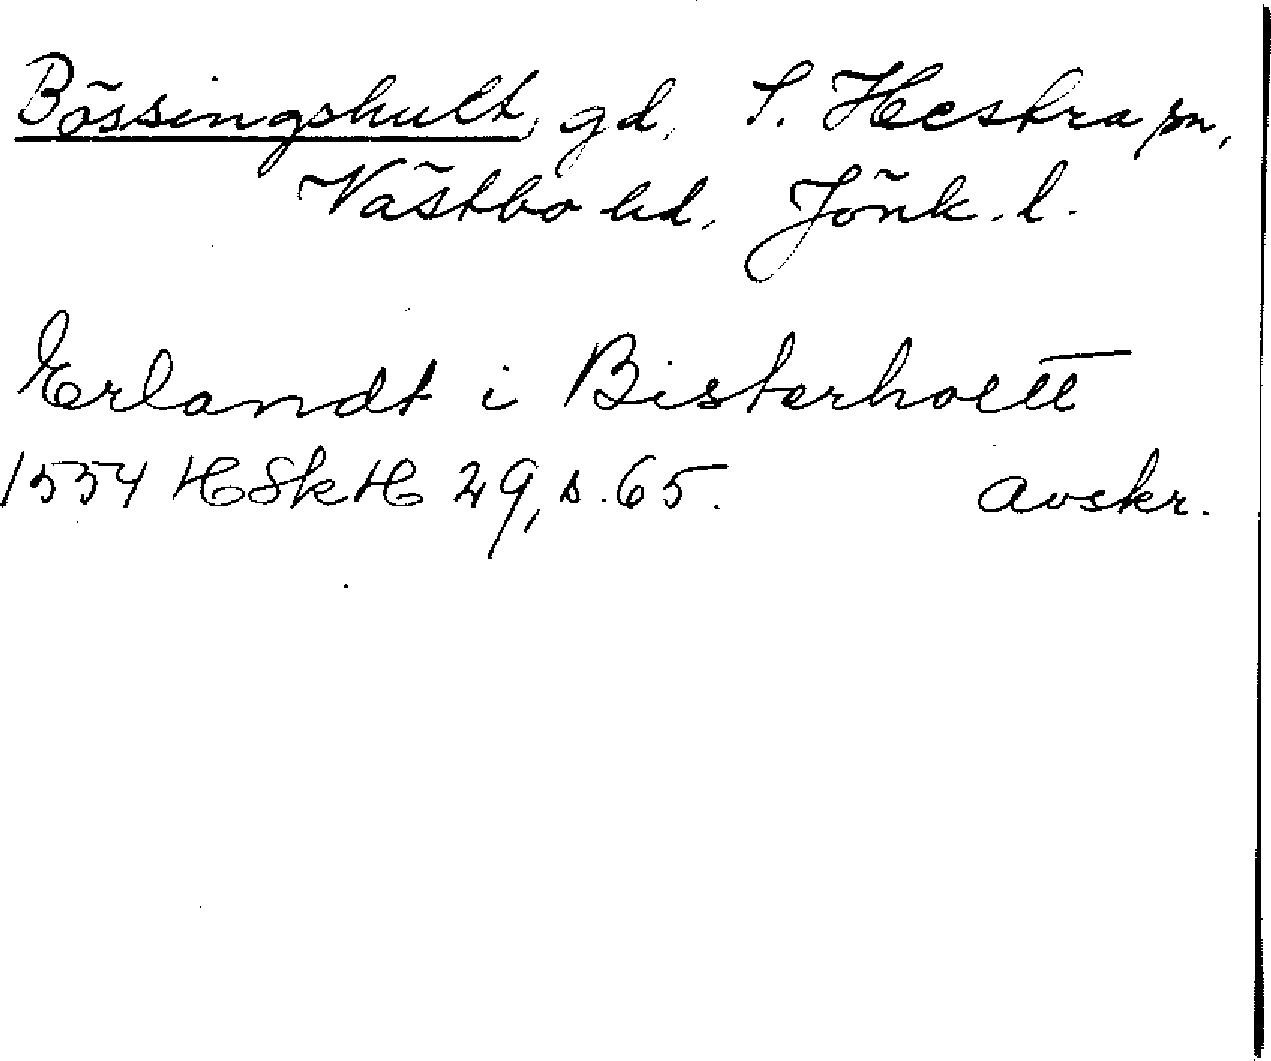 Bössingshult, gd, S. Hestra sn,
Västbo hd, Jönk. l.
Erlandt i Bisterholtt
1554 HSkH 29, s. 65. avskr.